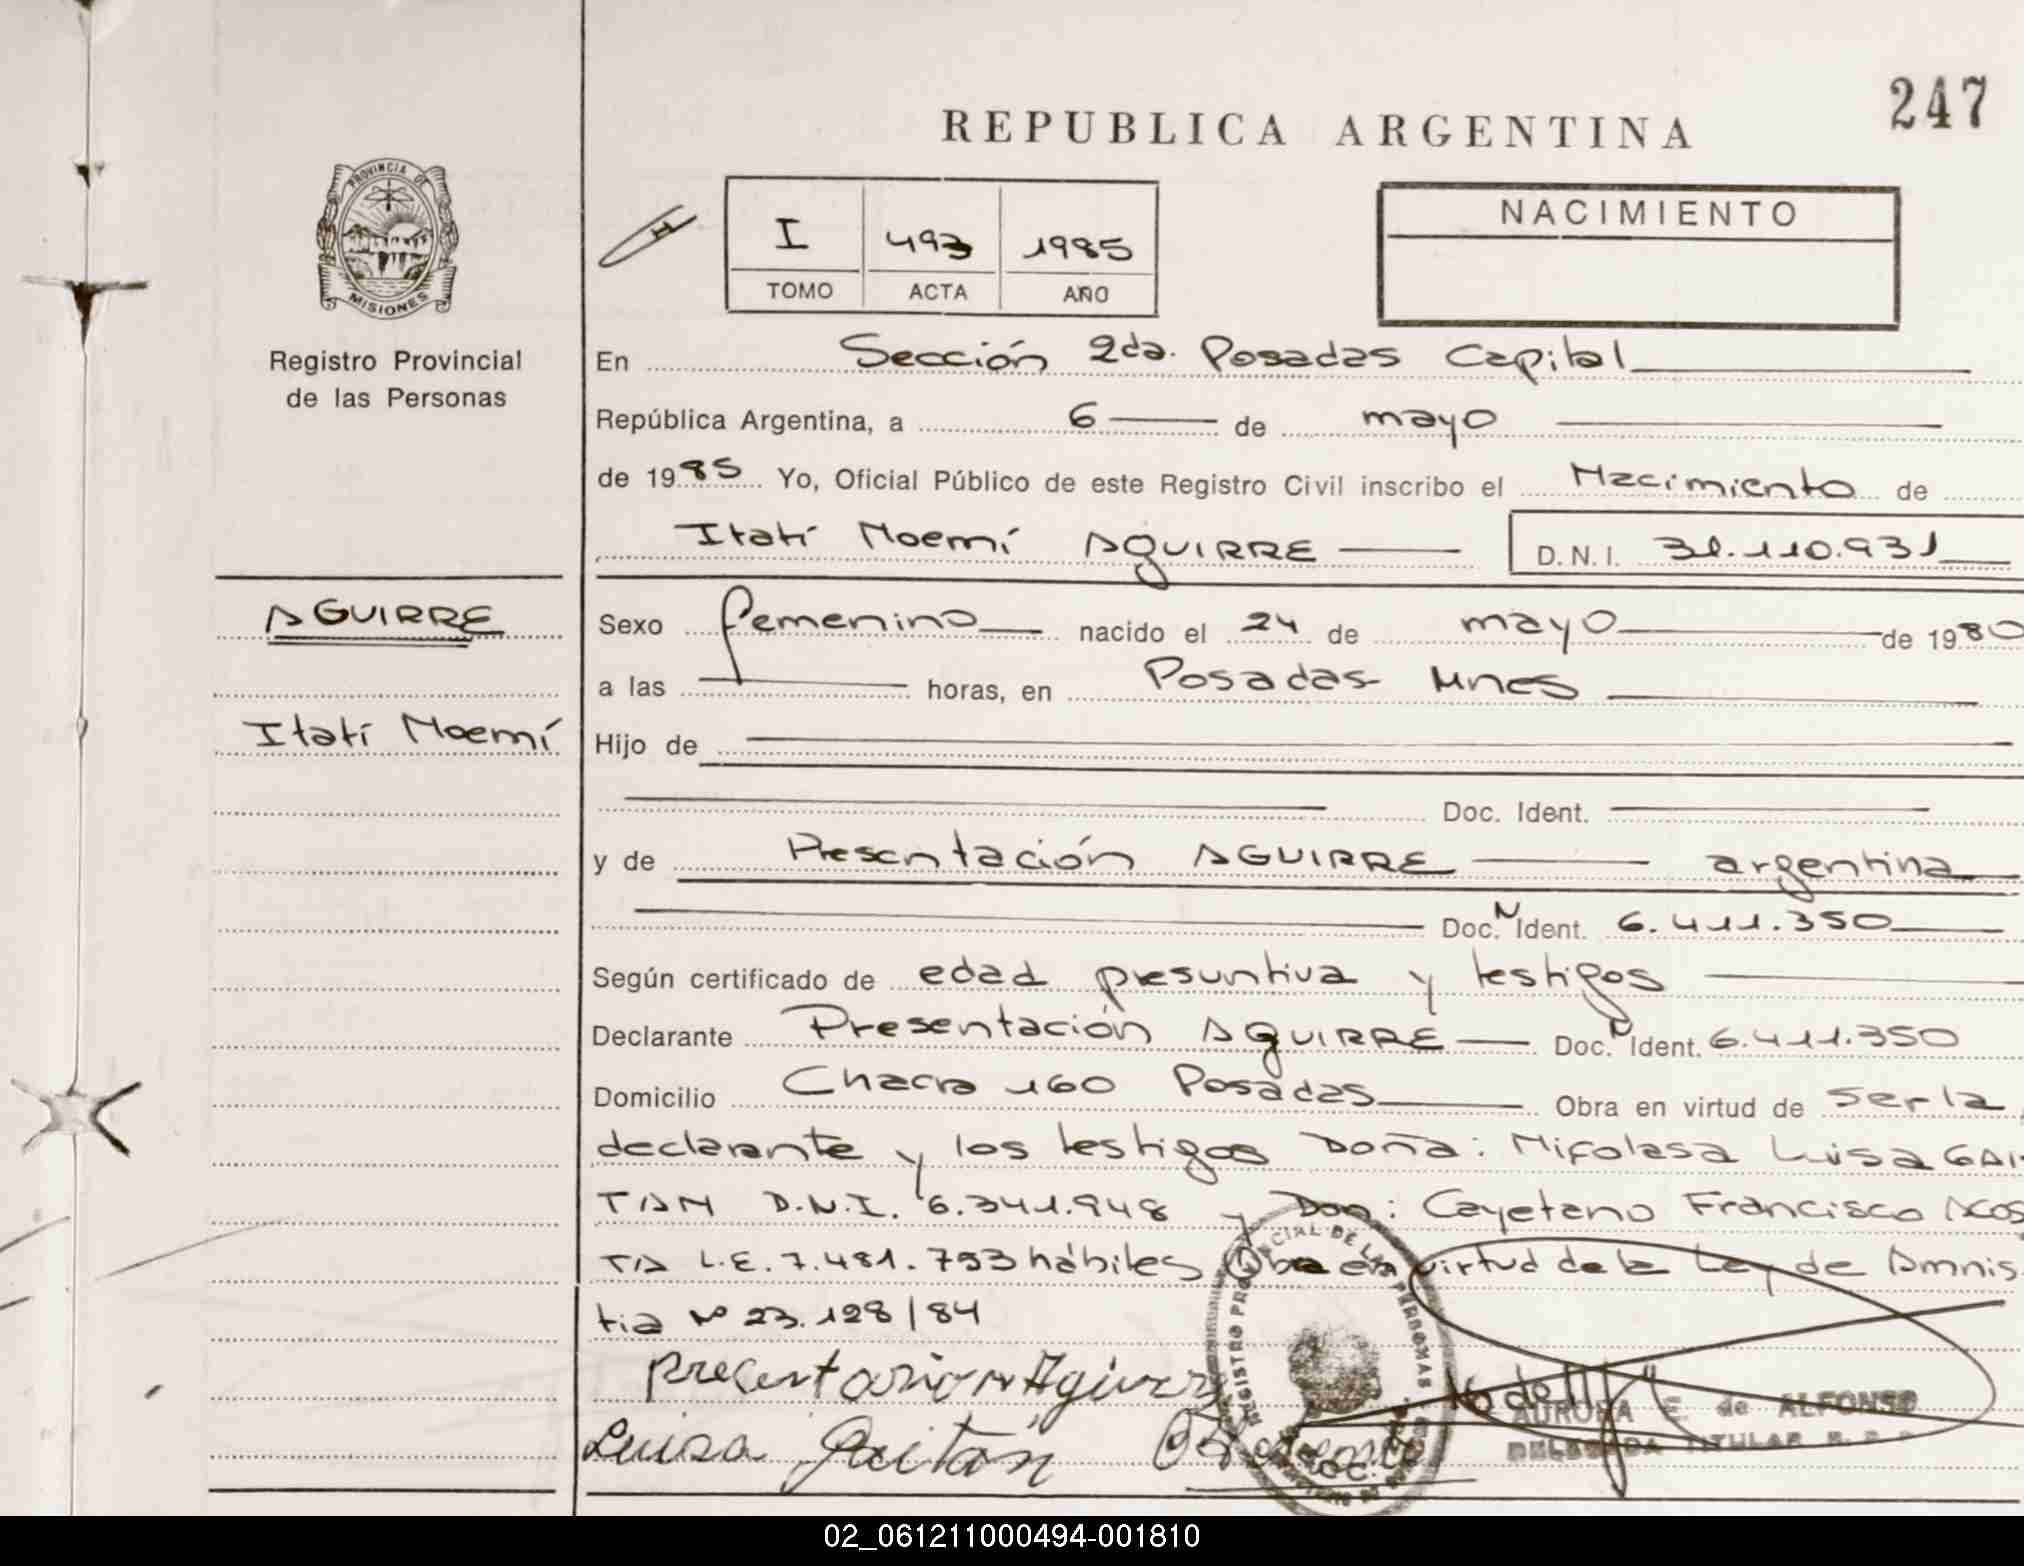 247
REPUBLICA ARGENTINA
PROVINCIA DE
MISIONES
Registro Provincial
de las Personas
I 493 1985
TOMO ACTA AÑO
NACIMIENTO
En Sección 2da. Posadas Capital
República Argentina, a 6 de mayo
de 1985 Yo, Oficial Público de este Registro Civil inscribo el Nacimiento de
Itatí Noemí AGUIRRE D.N.I. 31.110.931
AGUIRRE
Itatí Noemí
Sexo femenino nacido el 24 de mayo de 1980
a las horas, en Posadas Mnes
Hijo de
Doc. Ident.
y de Presentación AGUIRRE argentina
Doc. N Ident. 6.411.350
Según certificado de edad presuntiva y testigos
Declarante Presentación AGUIRRE Doc. N Ident. 6.411.350
Domicilio Chacra 160 Posadas Obra en virtud de ser la
declarante y los testigos Doña: Nicolasa Luisa GAI-
TAN D.N.I. 6.341.948 y Don: Cayetano Francisco ACOS
TA L.E. 7.481.753 hábiles Obra en virtud de la Ley de Amnis-
tia Nº 23.128/84
Luisa Gaitán
AURORA E. de ALFONSO
DELEGADA TITULAR R. P. P.
02_061211000494-001810